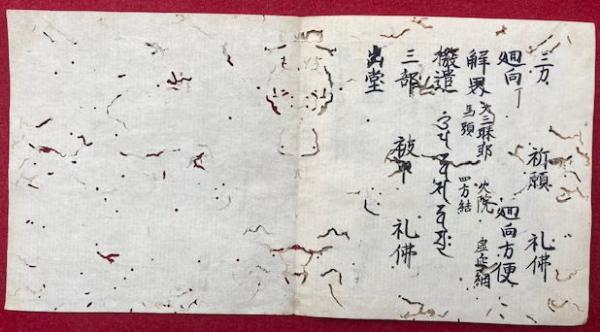 三力 祈願 礼佛
廻向 廻向方便
解界 大三昧耶 火院 虚空網
馬頭 四方結
撥遣
三部 被甲 礼佛
出堂